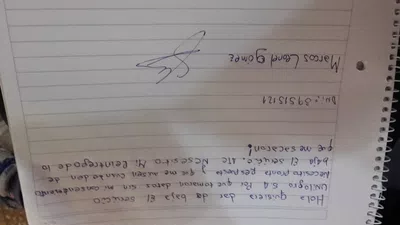 Hola quisiera dar da baja El servicio
Unlogro E.d Por que tomaron datos sin mi consentimiento
necesito pronta respuesta y que me avisen cuando den de
baja El servicio. Atc Necesito Mi Reintegro de lo
que me sacaron!
Dni: 39515121
Marcos Leonel Gomez